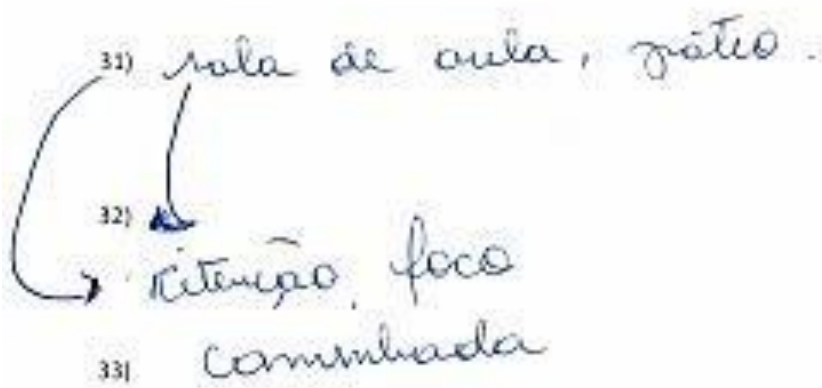 31) sala de aula, pátio.
32)
retenção, foco
33) caminhada